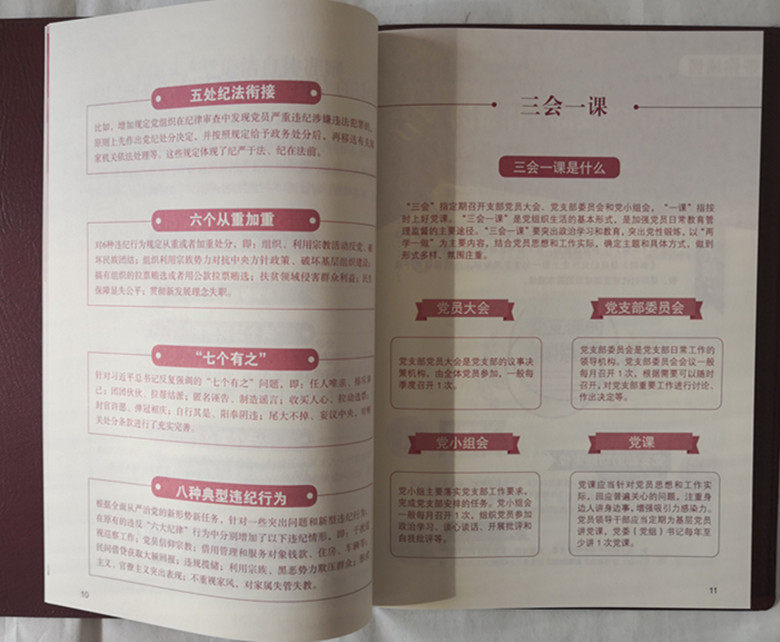 五处纪法衔接
比如，增加规定党组织在纪律审查中发现党员严重违纪涉嫌违法犯罪的，
原则上先作出党纪处分决定，并按照规定给予政务处分后，再移送有关
家机关依法处理等。这些规定体现了纪严于法、纪在法前。
六个从重加重
对6种违纪行为规定从重或者加重处分，即：组织、利用宗教活动反党、破
坏民族团结；组织利用宗族势力对抗中央方针政策、破坏基层组织建设；
搞有组织的拉票贿选或者用公款拉票贿选；扶贫领域侵害群众利益；民生
保障显失公平；贯彻新发展理念失职。
“七个有之”
针对习近平总书记反复强调的“七个有之”问题，即：任人唯亲、排斥异
己；团团伙伙、拉帮结派；匿名诬告、制造谣言；收买人心、拉动选票；
封官许愿、弹冠相庆；自行其是、阳奉阴违；尾大不掉、妄议中央，对
关处分条款进行了充实完善。
八种典型违纪行为
根据全面从严治党的新形势新任务，针对一些突出问题和新型违纪行为，
在原有的违反“六大纪律”行为中分别增加了以下违纪情形，即：干扰巡
视巡察工作；党员信仰宗教；借用管理和服务对象钱款、住房、车辆等；
民间借贷获取大额回报；违规揽储；利用宗族、黑恶势力欺压群众；形式
主义、官僚主义突出表现；不重视家风、对家属失管失教。
10
三会一课
三会一课是什么
“三会”指定期召开支部党员大会、党支部委员会和党小组会，“一课”指按
时上好党课。“三会一课”是党组织生活的基本形式，是加强党员日常教育管
理监督的主要途径。“三会一课”要突出政治学习和教育，突出党性锻炼，以“两
学一做”为主要内容，结合党员思想和工作实际，确定主题和具体方式，做到
形式多样、氛围庄重。
党员大会
党支部党员大会是党支部的议事决
策机构，由全体党员参加，一般每
季度召开1次。
党支部委员会
党支部委员会是党支部日常工作的
领导机构。党支部委员会会议一般
每月召开1次，根据需要可以随时
召开，对党支部重要工作进行讨论、
作出决定等。
党小组会
党小组主要落实党支部工作要求，
完成党支部安排的任务。党小组会
一般每月召开1次，组织党员参加
政治学习、谈心谈话、开展批评和
自我批评等。
党课
党课应当针对党员思想和工作实
际，回应普遍关心的问题，注重身
边人讲身边事，增强吸引力感染力。
党员领导干部应当定期为基层党员
讲党课，党委（党组）书记每年至
少讲1次党课。
11